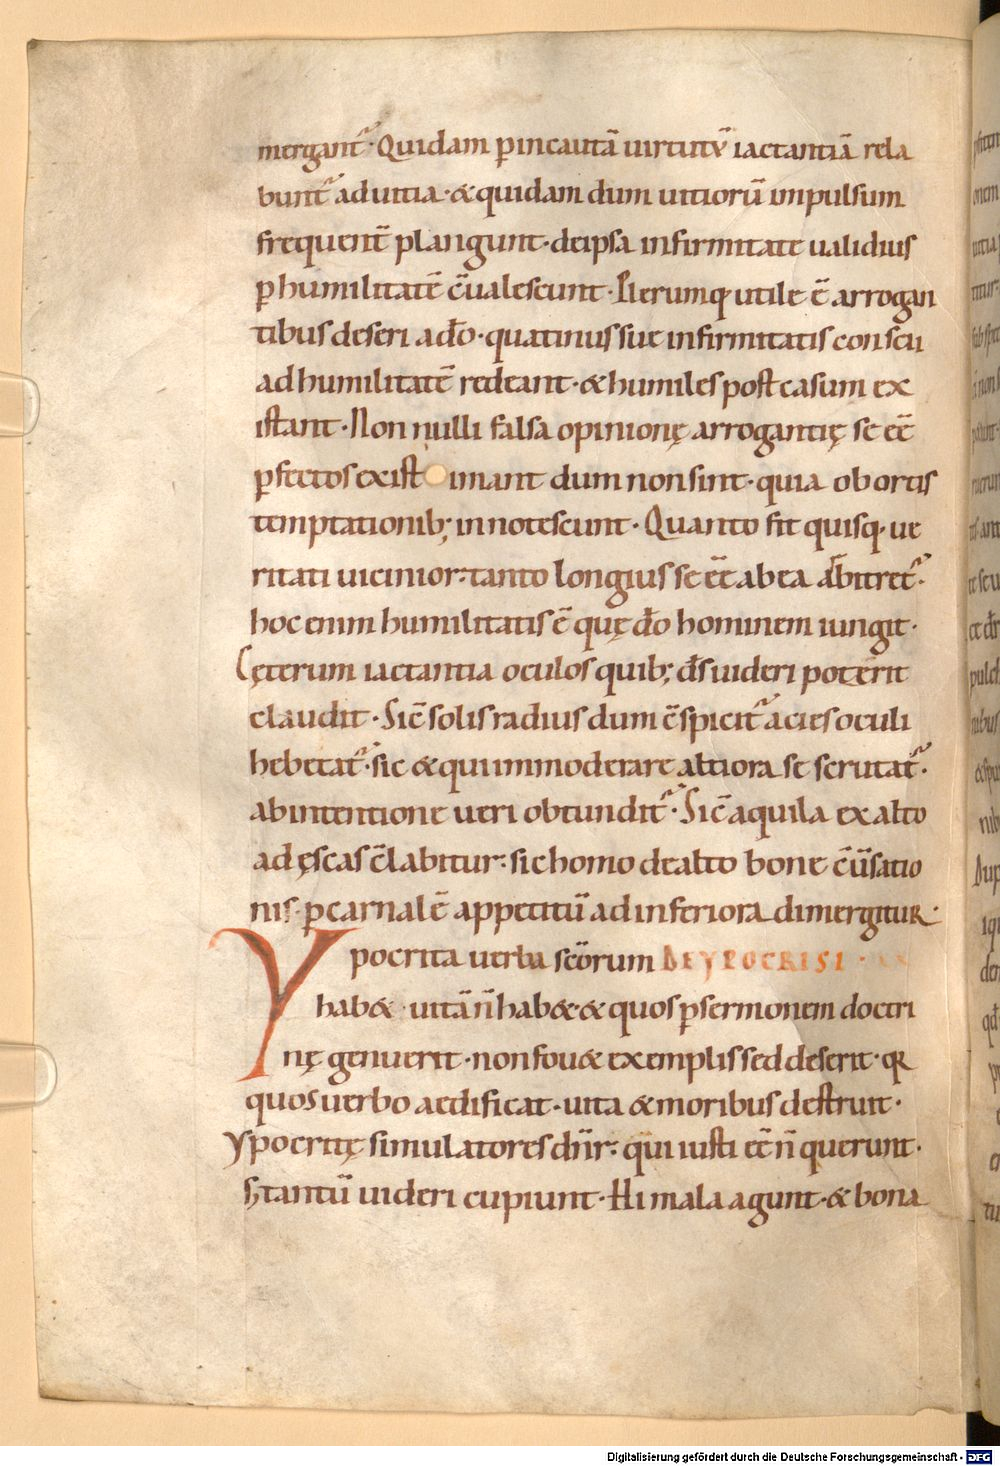 mergant᷑· Quidam ꝑincautā uirtutū iactantiā rela
bunt᷑ aduitia· & quidam dum uitiorū impulsum
frequent̄ plangunt· deipsa infirmitate ualidius
ꝑ humilitatē c̄ualescunt· Plerumq; utile ē arrogan
tibus deseri a dō· quatinus sue infirmitatis conscii
ad humilitatē redeant· & humiles post casum ex
istant· Non nulli falsa opinionę arrogantię se eē
ꝑfectos exist imant dum non sint· quia obortis
temptationib; innotescunt· Quanto fit quisq· ue
ritati uicinior· tanto longius se eē ab ea arbitret᷑·
hoc enim humilitatis ē quę dō hominem iungit·
Cęterum iactantia oculos quib; d̄s uideri poterit
claudit· Sic̄ solis radius dum c̄spicit᷑ acies oculi
hebetat᷑· sic & qui immoderate altiora se scrutat᷑·
ab intentione ueri obtundit᷑· Sic̄ aquila ex alto
ad ęscas c̄labitur· sic homo de alto bone c̄uersatio
nis· ꝑ carnalē appetitū ad inferiora dimergitur·
Ypocrita uerba scōrum DE YPOCRISI·
hab&· uitā n̄ hab&· & quos ꝑ sermonem doctri
nę genuerit· non fou& exemplis sed deserit· qr
quos uerbo aedificat· uita & moribus destruit·
Ypocritę simulatores dn̄r· qui iusti eē n̄ querunt·
s; tantū uideri cupiunt· Hi mala agunt· & bona
Digitalisierung gefördert durch die Deutsche Forschungsgemeinschaft - DFG